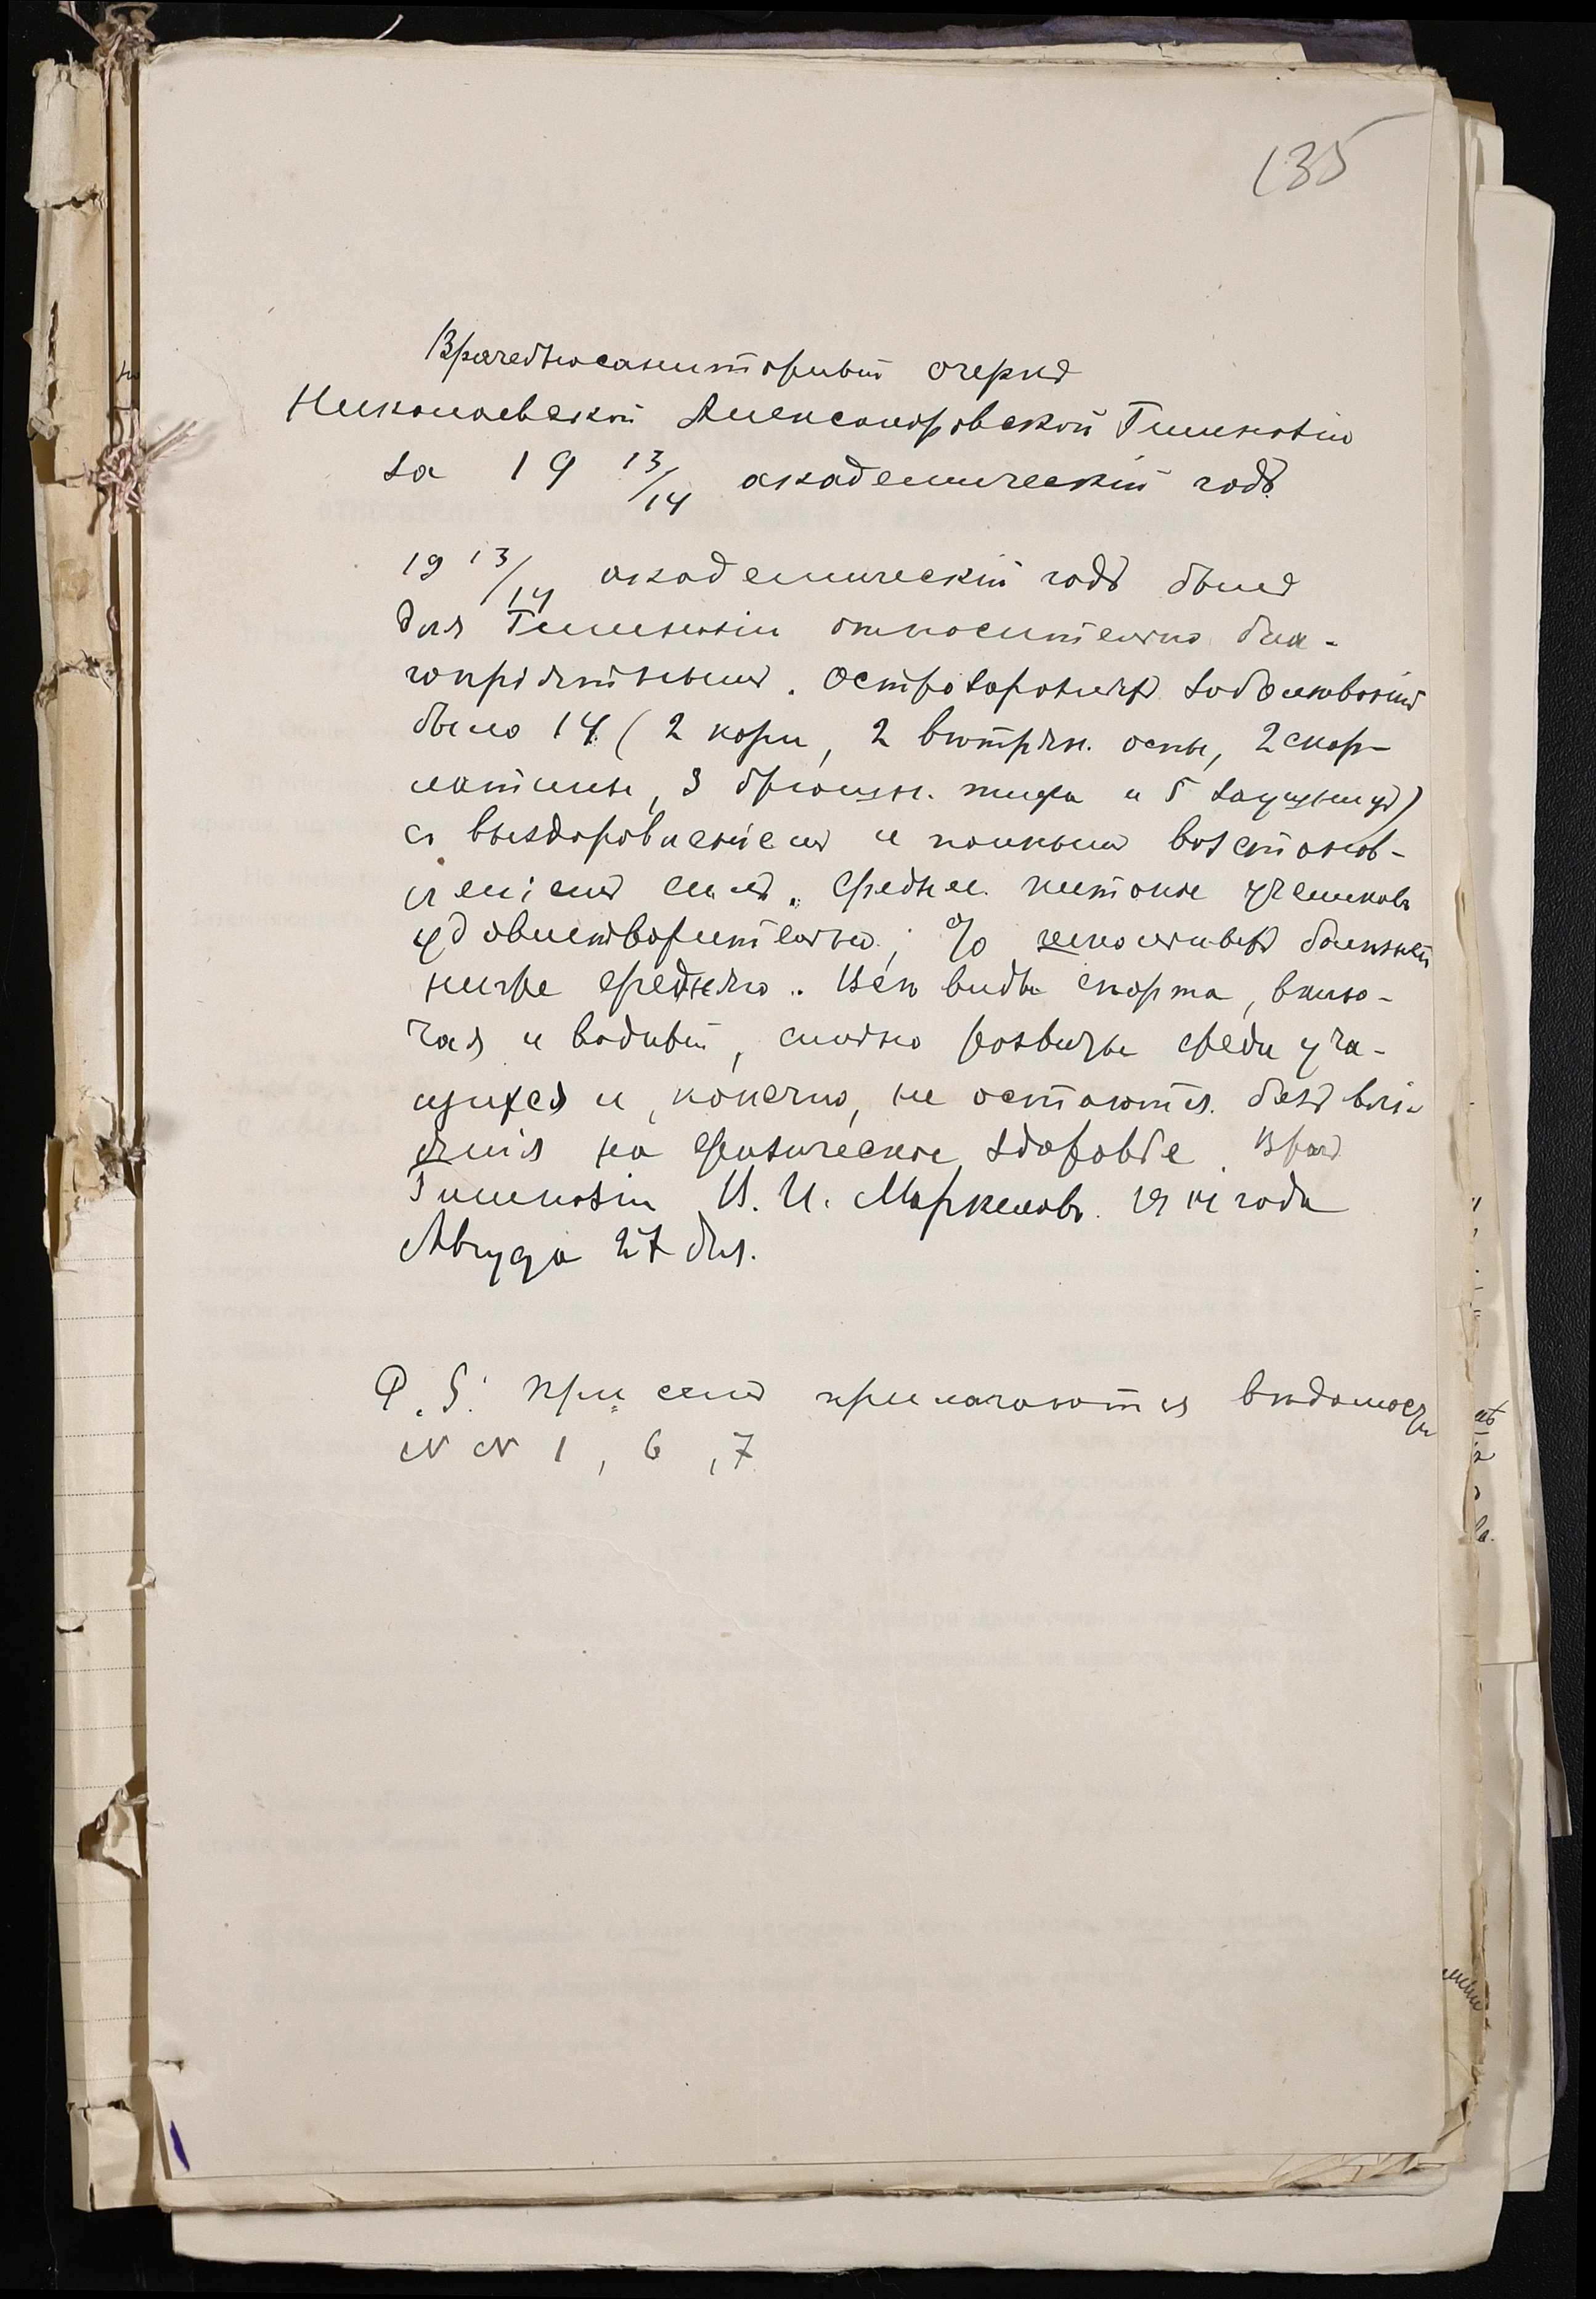 135
Врачебносанитарный очеркъ
Николаевской Александровской Гимназіи
за 19 13/14 академическій годъ.
19 13/14 академическій годъ былъ
для Гимназіи относительно бла-
гопріятнымъ. Острозаразныхъ заболѣваній
было 14 (2 кори, 2 вѣтрян. оспы, 2 скар-
латины, 3 брюшн. тифа и 5
съ выздоровленіемъ и полнымъ возстанов-
леніемъ силъ. Среднее питаніе учениковъ
удовлетворительно; %
ниже средняго. Всѣ виды спорта, вклю-
чая и водный, сильно развиты среди уча-
щихся и, конечно, не остаются безъ влі-
янія на физическое здоровье. Врач
Гимназіи И. И. Маркеловъ. 1914 года
Августа 27 дня.
P.S. При семъ прилагаются вѣдомости
№ № 1, 6, 7